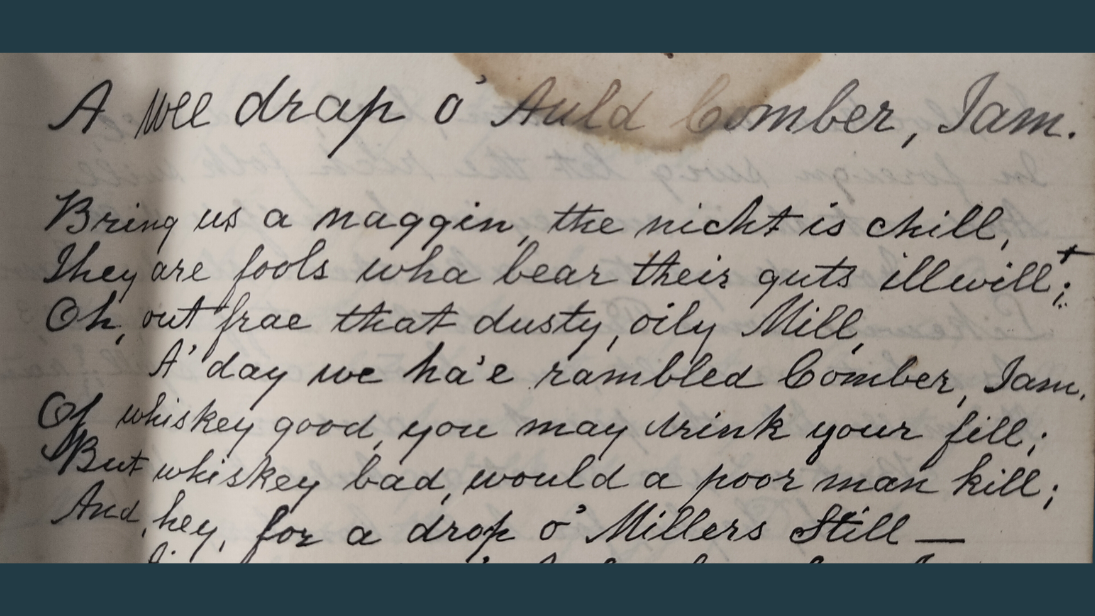 A wee drap o' Auld Comber, Jam.
Bring us a naggin, the nicht is chill,
They are fools wha bear their guts illwill;+
Oh, out frae that dusty, oily Mill,
A' day we ha'e rambled Comber, Jam.
Of whiskey good, you may drink your fill;
But whiskey bad, would a poor man kill;
And, hey, for a drop o' Millers Still —